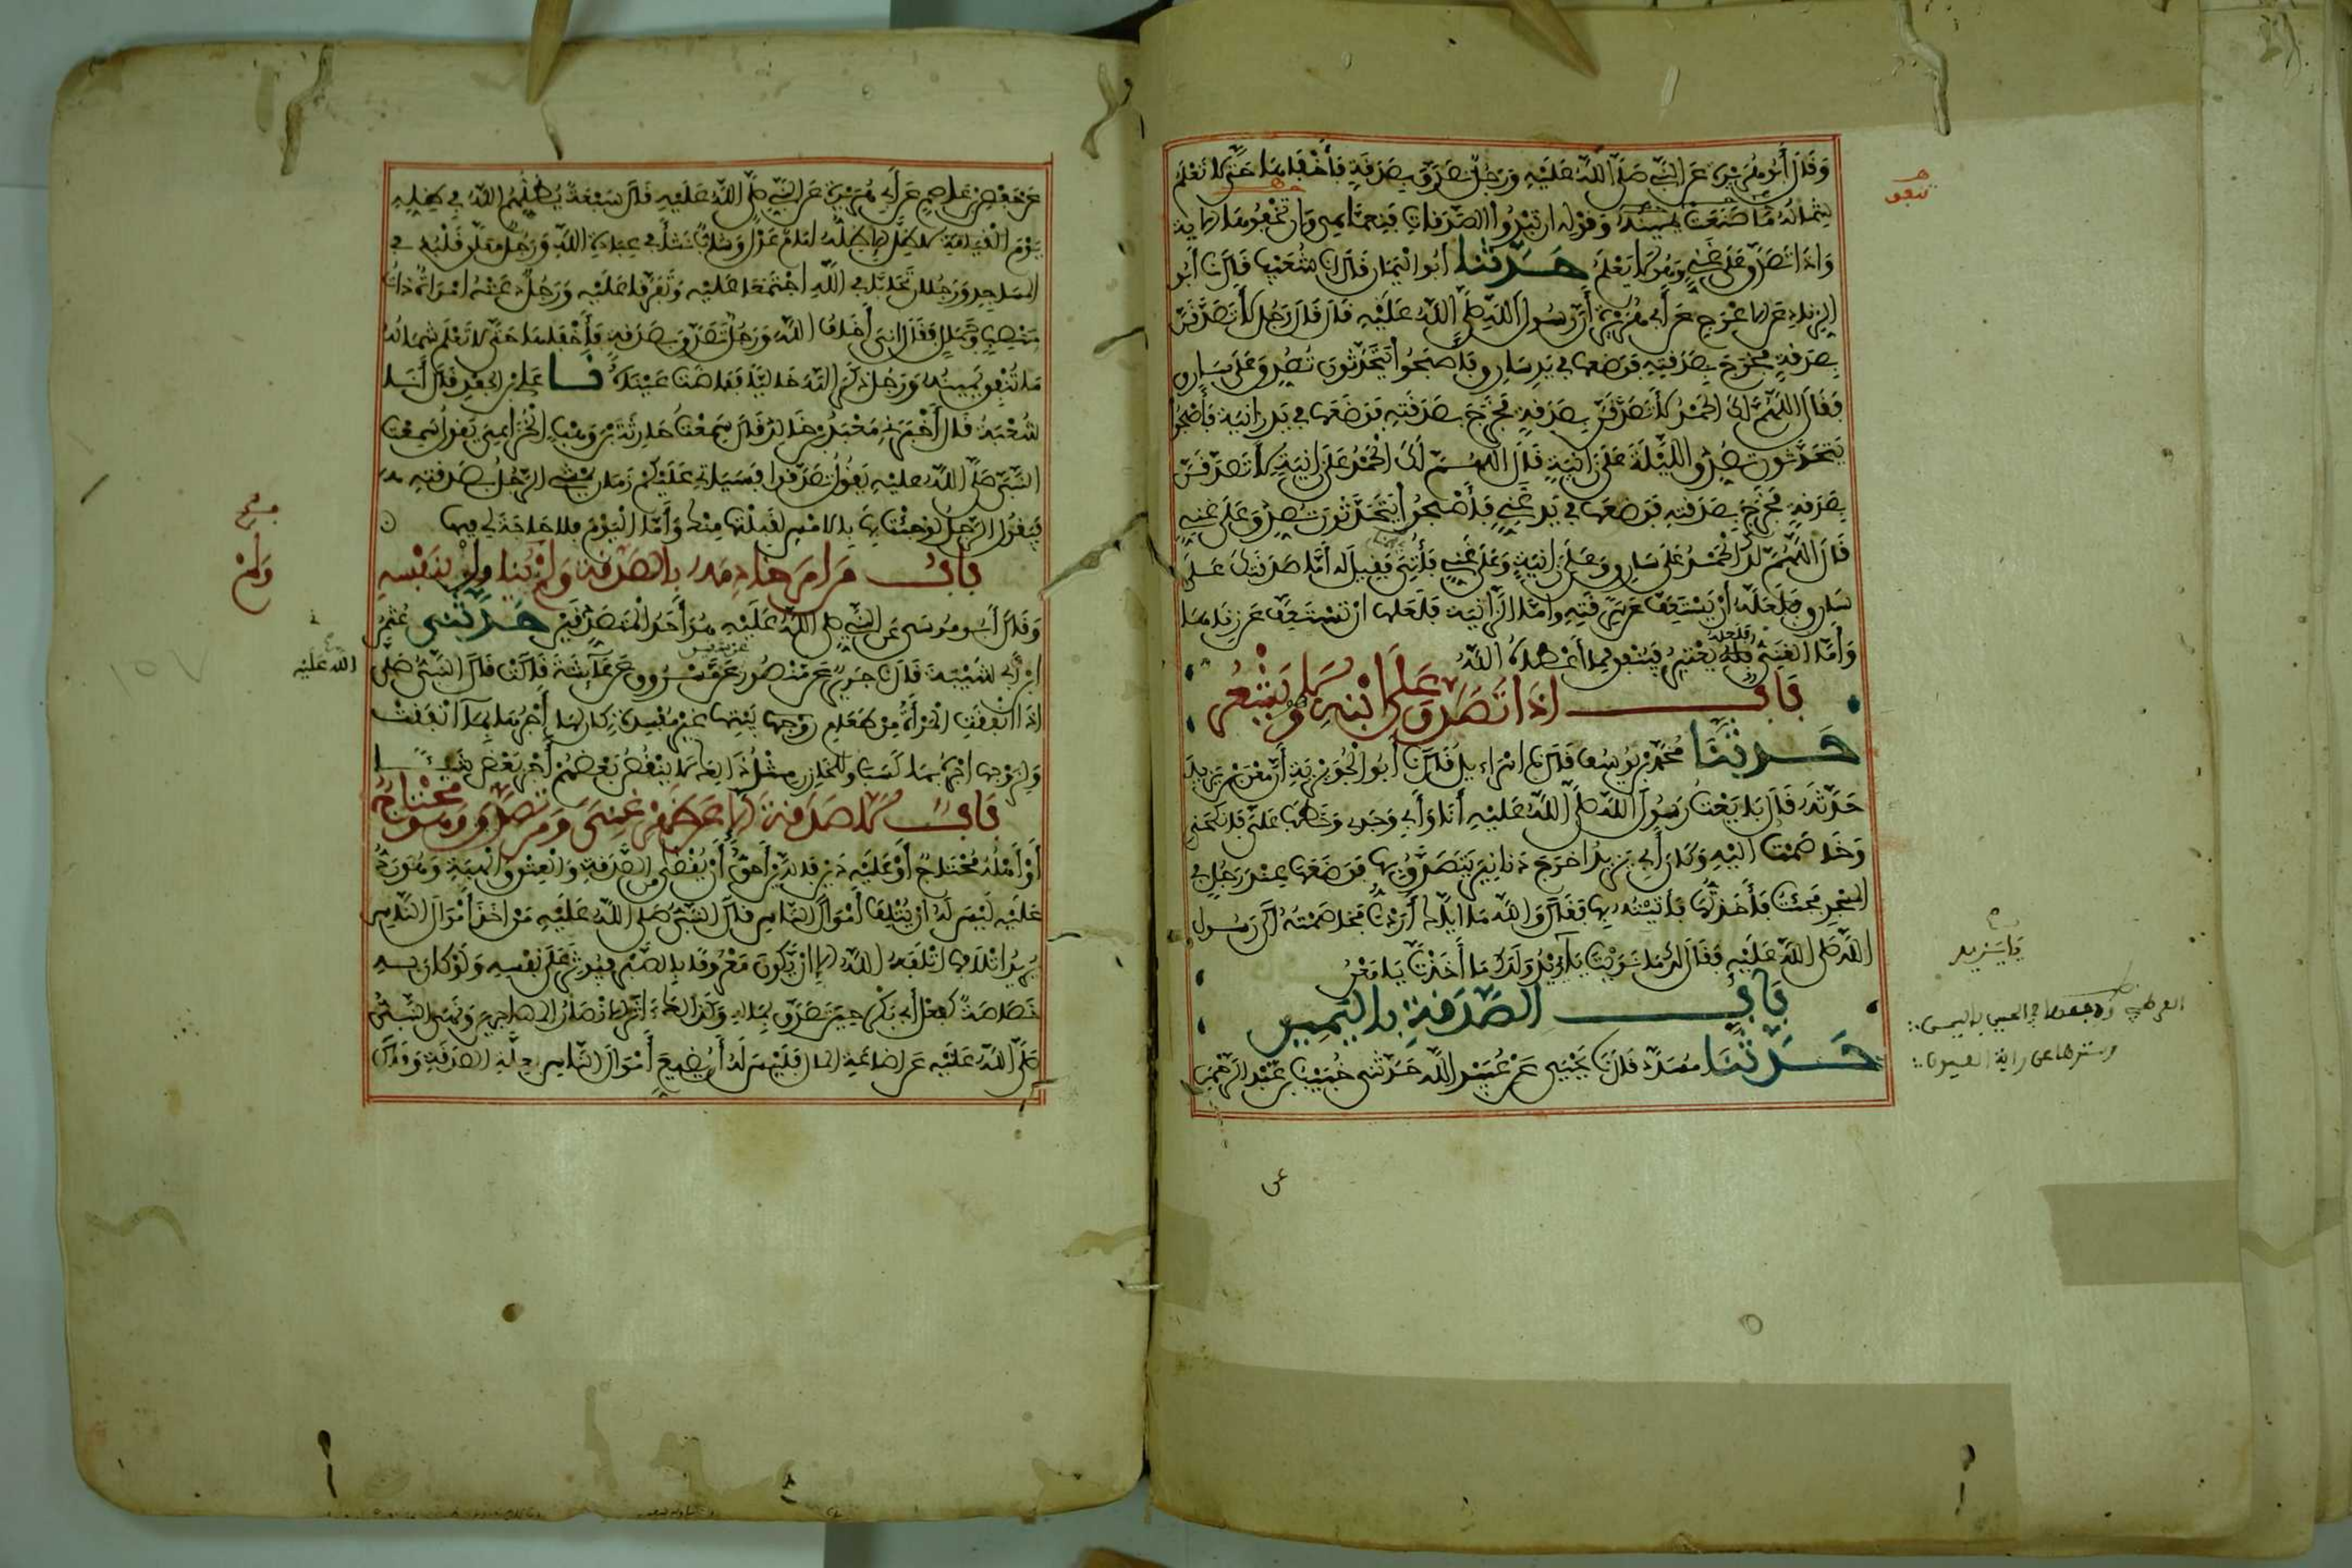 وَقَالَ أَبُو هُرَيْرَةَ عَنِ النَّبِيِّ صَلَّى اللَّهُ عَلَيْهِ وَرَجُلٌ تَصَدَّقَ بِصَدَقَةٍ فَأَخْفَاهَا حَتَّى لَا تَعْلَمَ
شِمَالُهُ مَا صَنَعَتْ يَمِينُهُ وَقَوْلِهِ إن تُبْدُوا الصَّدَقَاتِ فَنِعِمَّا هِيَ وَإن تُخْفُوهَا الآية
وَإِذَا تَصَدَّقَ عَلَى غَنِيٍّ وَهُوَ لَا يَعْلَمُ حَدَّثَنَا أَبُو الْيَمَانِ قَالَ نا شُعَيْبٌ قَالَ نا أَبُو
الزِّنَادِ عَنِ الأَعْرَجِ عَنْ أَبِي هُرَيْرَةَ أَنَّ رَسُولَ اللَّهِ صَلَّى اللَّهُ عَلَيْهِ قَالَ قَالَ رَجُلٌ لَأَتَصَدَّقَنَّ
بِصَدَقَةٍ فَخَرَجَ بِصَدَقَتِهِ فَوَضَعَهَا فِي يَدِ سَارِقٍ فَأَصْبَحُوا يَتَحَدَّثُونَ تُصُدِّقَ عَلَى سَارِقٍ
فَقَالَ اللَّهُمَّ لَكَ الْحَمْدُ لَأَتَصَدَّقَنَّ بِصَدَقَةٍ فَخَرَجَ بِصَدَقَتِهِ فَوَضَعَهَا فِي يَدِ زَانِيَةٍ فَأَصْبَحُوا
يَتَحَدَّثُونَ تُصُدِّقَ اللَّيْلَةَ عَلَى زَانِيَةٍ قَالَ اللَّهُمَّ لَكَ الْحَمْدُ عَلَى زَانِيَةٍ لَأَتَصَدَّقَنَّ
بِصَدَقَةٍ فَخَرَجَ بِصَدَقَتِهِ فَوَضَعَهَا فِي يَدِ غَنِيٍّ فَأَصْبَحُوا يَتَحَدَّثُونَ تُصُدِّقَ عَلَى غَنِيٍّ
قَالَ اللَّهُمَّ لَكَ الْحَمْدُ عَلَى سَارِقٍ وَعَلَى زَانِيَةٍ وَعَلَى غَنِيٍّ فَأُتِيَ فَقِيلَ لَهُ أَمَّا صَدَقَتُكَ عَلَى
سَارِقٍ فَلَعَلَّهُ أَنْ يَسْتَعِفَّ عَنْ سَرِقَتِهِ وَأَمَّا الزَّانِيَةُ فَلَعَلَّهَا أَنْ تَسْتَعِفَّ عَنْ زِنَاهَا
وَأَمَّا الْغَنِيُّ فَلَعَلَّهُ يَعْتَبِرُ فَيُنْفِقُ مِمَّا أَعْطَاهُ اللَّهُ
بَابٌ إِذَا تَصَدَّقَ عَلَى ابْنِهِ وَهُوَ لَا يَشْعُرُ
حَدَّثَنَا مُحَمَّدُ بْنُ يُوسُفَ قَالَ نا إِسْرَاءِيلُ قَالَ نا أَبُو الْجُوَيْرِيَةِ أَنَّ مَعْنَ بْنَ يَزِيدَ
حَدَّثَهُ قَالَ بَايَعْتُ رَسُولَ اللَّهِ صَلَّى اللَّهُ عَلَيْهِ أَنَا وَأَبِي وَجَدِّي وَخَطَبَ عَلَيَّ فَأَنْكَحَنِي
وَخَاصَمْتُ إِلَيْهِ وَكَانَ أَبِي يَزِيدُ أَخْرَجَ دَنَانِيرَ يَتَصَدَّقُ بِهَا فَوَضَعَهَا عِنْدَ رَجُلٍ فِي
الْمَسْجِدِ فَجِئْتُ فَأَخَذْتُهَا فَأَتَيْتُهُ بِهَا فَقَالَ وَاللَّهِ مَا إِيَّاكَ أَرَدْتُ فَخَاصَمْتُهُ إِلَى رَسُولِ
اللَّهِ صَلَّى اللَّهُ عَلَيْهِ فَقَالَ لَكَ مَا نَوَيْتَ يَا يَزِيدُ وَلَكَ مَا أَخَذْتَ يَا مَعْنُ
بَابُ الصَّدَقَةِ بِالْيَمِينِ
حَدَّثَنَا مُسَدَّدٌ قَالَ نا يَحْيَى عَنْ عُبَيْدِ اللَّهِ حَدَّثَنِي خُبَيْبُ بْنُ عَبْدِ الرَّحْمَنِ
تنفق
يا يزيد
عن
عَنْ حَفْصِ بْنِ عَاصِمٍ عَنْ أَبِي هُرَيْرَةَ عَنِ النَّبِيِّ صَلَّى اللَّهُ عَلَيْهِ قَالَ سَبْعَةٌ يُظِلُّهُمُ اللَّهُ فِي ظِلِّهِ
يَوْمَ الْقِيَامَةِ لَا ظِلَّ إِلَّا ظِلُّهُ إِمَامٌ عَدْلٌ وَشَابٌّ نَشَأَ فِي عِبَادَةِ اللَّهِ وَرَجُلٌ مُعَلَّقٌ قَلْبُهُ فِي
الْمَسَاجِدِ وَرَجُلَانِ تَحَابَّا فِي اللَّهِ اجْتَمَعَا عَلَيْهِ وَتَفَرَّقَا عَلَيْهِ وَرَجُلٌ دَعَتْهُ امْرَأَةٌ ذَاتُ
مَنْصِبٍ وَجَمَالٍ فَقَالَ إِنِّي أَخَافُ اللَّهَ وَرَجُلٌ تَصَدَّقَ بِصَدَقَةٍ فَأَخْفَاهَا حَتَّى لَا تَعْلَمَ شِمَالُهُ
مَا تُنْفِقُ يَمِينُهُ وَرَجُلٌ ذَكَرَ اللَّهَ خَالِيًا فَفَاضَتْ عَيْنَاهُ نا عَلِيُّ بْنُ الْجَعْدِ قَالَ أَنَا
شُعْبَةُ قَالَ أَخْبَرَنِي مَعْبَدُ بْنُ خَالِدٍ قَالَ سَمِعْتُ حَارِثَةَ بْنَ وَهْبٍ الْخُزَاعِيَّ يَقُولُ سَمِعْتُ
النَّبِيَّ صَلَّى اللَّهُ عَلَيْهِ يَقُولُ تَصَدَّقُوا فَسَيَأْتِي عَلَيْكُمْ زَمَانٌ يَمْشِي الرَّجُلُ بِصَدَقَتِهِ
فَيَقُولُ الرَّجُلُ لَوْ جِئْتَ بِهَا بِالأَمْسِ لَقَبِلْتُهَا مِنْكَ وَأَمَّا الْيَوْمَ فَلَا حَاجَةَ لِي فِيهَا
بَابُ مَنْ أَمَرَ خَادِمَهُ بِالصَّدَقَةِ وَلَمْ يُنَاوِلْ بِنَفْسِهِ
وَقَالَ أَبُو مُوسَى عَنِ النَّبِيِّ صَلَّى اللَّهُ عَلَيْهِ هُوَ أَحَدُ الْمُتَصَدِّقَيْنِ حَدَّثَنِي عُثْمَانُ
ابْنُ أَبِي شَيْبَةَ قَالَ نا جَرِيرٌ عَنْ مَنْصُورٍ عَنْ شَقِيقٍ عَنْ مَسْرُوقٍ عَنْ عَائِشَةَ قَالَتْ قَالَ النَّبِيُّ صَلَّى
اللَّهُ عَلَيْهِ
إِذَا أَنْفَقَتِ الْمَرْأَةُ مِنْ طَعَامِ زَوْجِهَا بَيْتِهَا غَيْرَ مُفْسِدَةٍ كَانَ لَهَا أَجْرُهَا بِمَا أَنْفَقَتْ
وَلِزَوْجِهَا أَجْرُهُ بِمَا كَسَبَ وَلِلْخَازِنِ مِثْلُ ذَلِكَ لَا يَنْقُصُ بَعْضُهُمْ أَجْرَ بَعْضٍ شَيْئًا
بَابٌ لَا صَدَقَةَ إِلَّا عَنْ ظَهْرِ غِنًى وَمَنْ تَصَدَّقَ وَهُوَ مُحْتَاجٌ
أَوْ أَهْلُهُ مُحْتَاجٌ أَوْ عَلَيْهِ دَيْنٌ فَالدَّيْنُ أَحَقُّ أَنْ يُقْضَى مِنَ الصَّدَقَةِ وَالْعِتْقِ وَالْهِبَةِ وَهُوَ رَدٌّ
عَلَيْهِ لَيْسَ لَهُ أَنْ يُتْلِفَ أَمْوَالَ النَّاسِ قَالَ النَّبِيُّ صَلَّى اللَّهُ عَلَيْهِ مَنْ أَخَذَ أَمْوَالَ النَّاسِ
يُرِيدُ إِتْلَافَهَا أَتْلَفَهُ اللَّهُ إِلَّا أَنْ يَكُونَ مَعْرُوفًا بِالصَّبْرِ فَيُؤْثِرَ عَلَى نَفْسِهِ وَلَوْ كَانَ بِهِ
خَصَاصَةٌ كَفِعْلِ أَبِي بَكْرٍ حِينَ تَصَدَّقَ بِمَالِهِ وَكَذَلِكَ آثَرَ الأَنْصَارُ الْمُهَاجِرِينَ وَنَهَى النَّبِيُّ
صَلَّى اللَّهُ عَلَيْهِ عَنْ إِضَاعَةِ الْمَالِ فَلَيْسَ لَهُ أَنْ يُضِيعَ أَمْوَالَ النَّاسِ بِعِلَّةِ الصَّدَقَةِ وَقَالَ
وَلَمْ